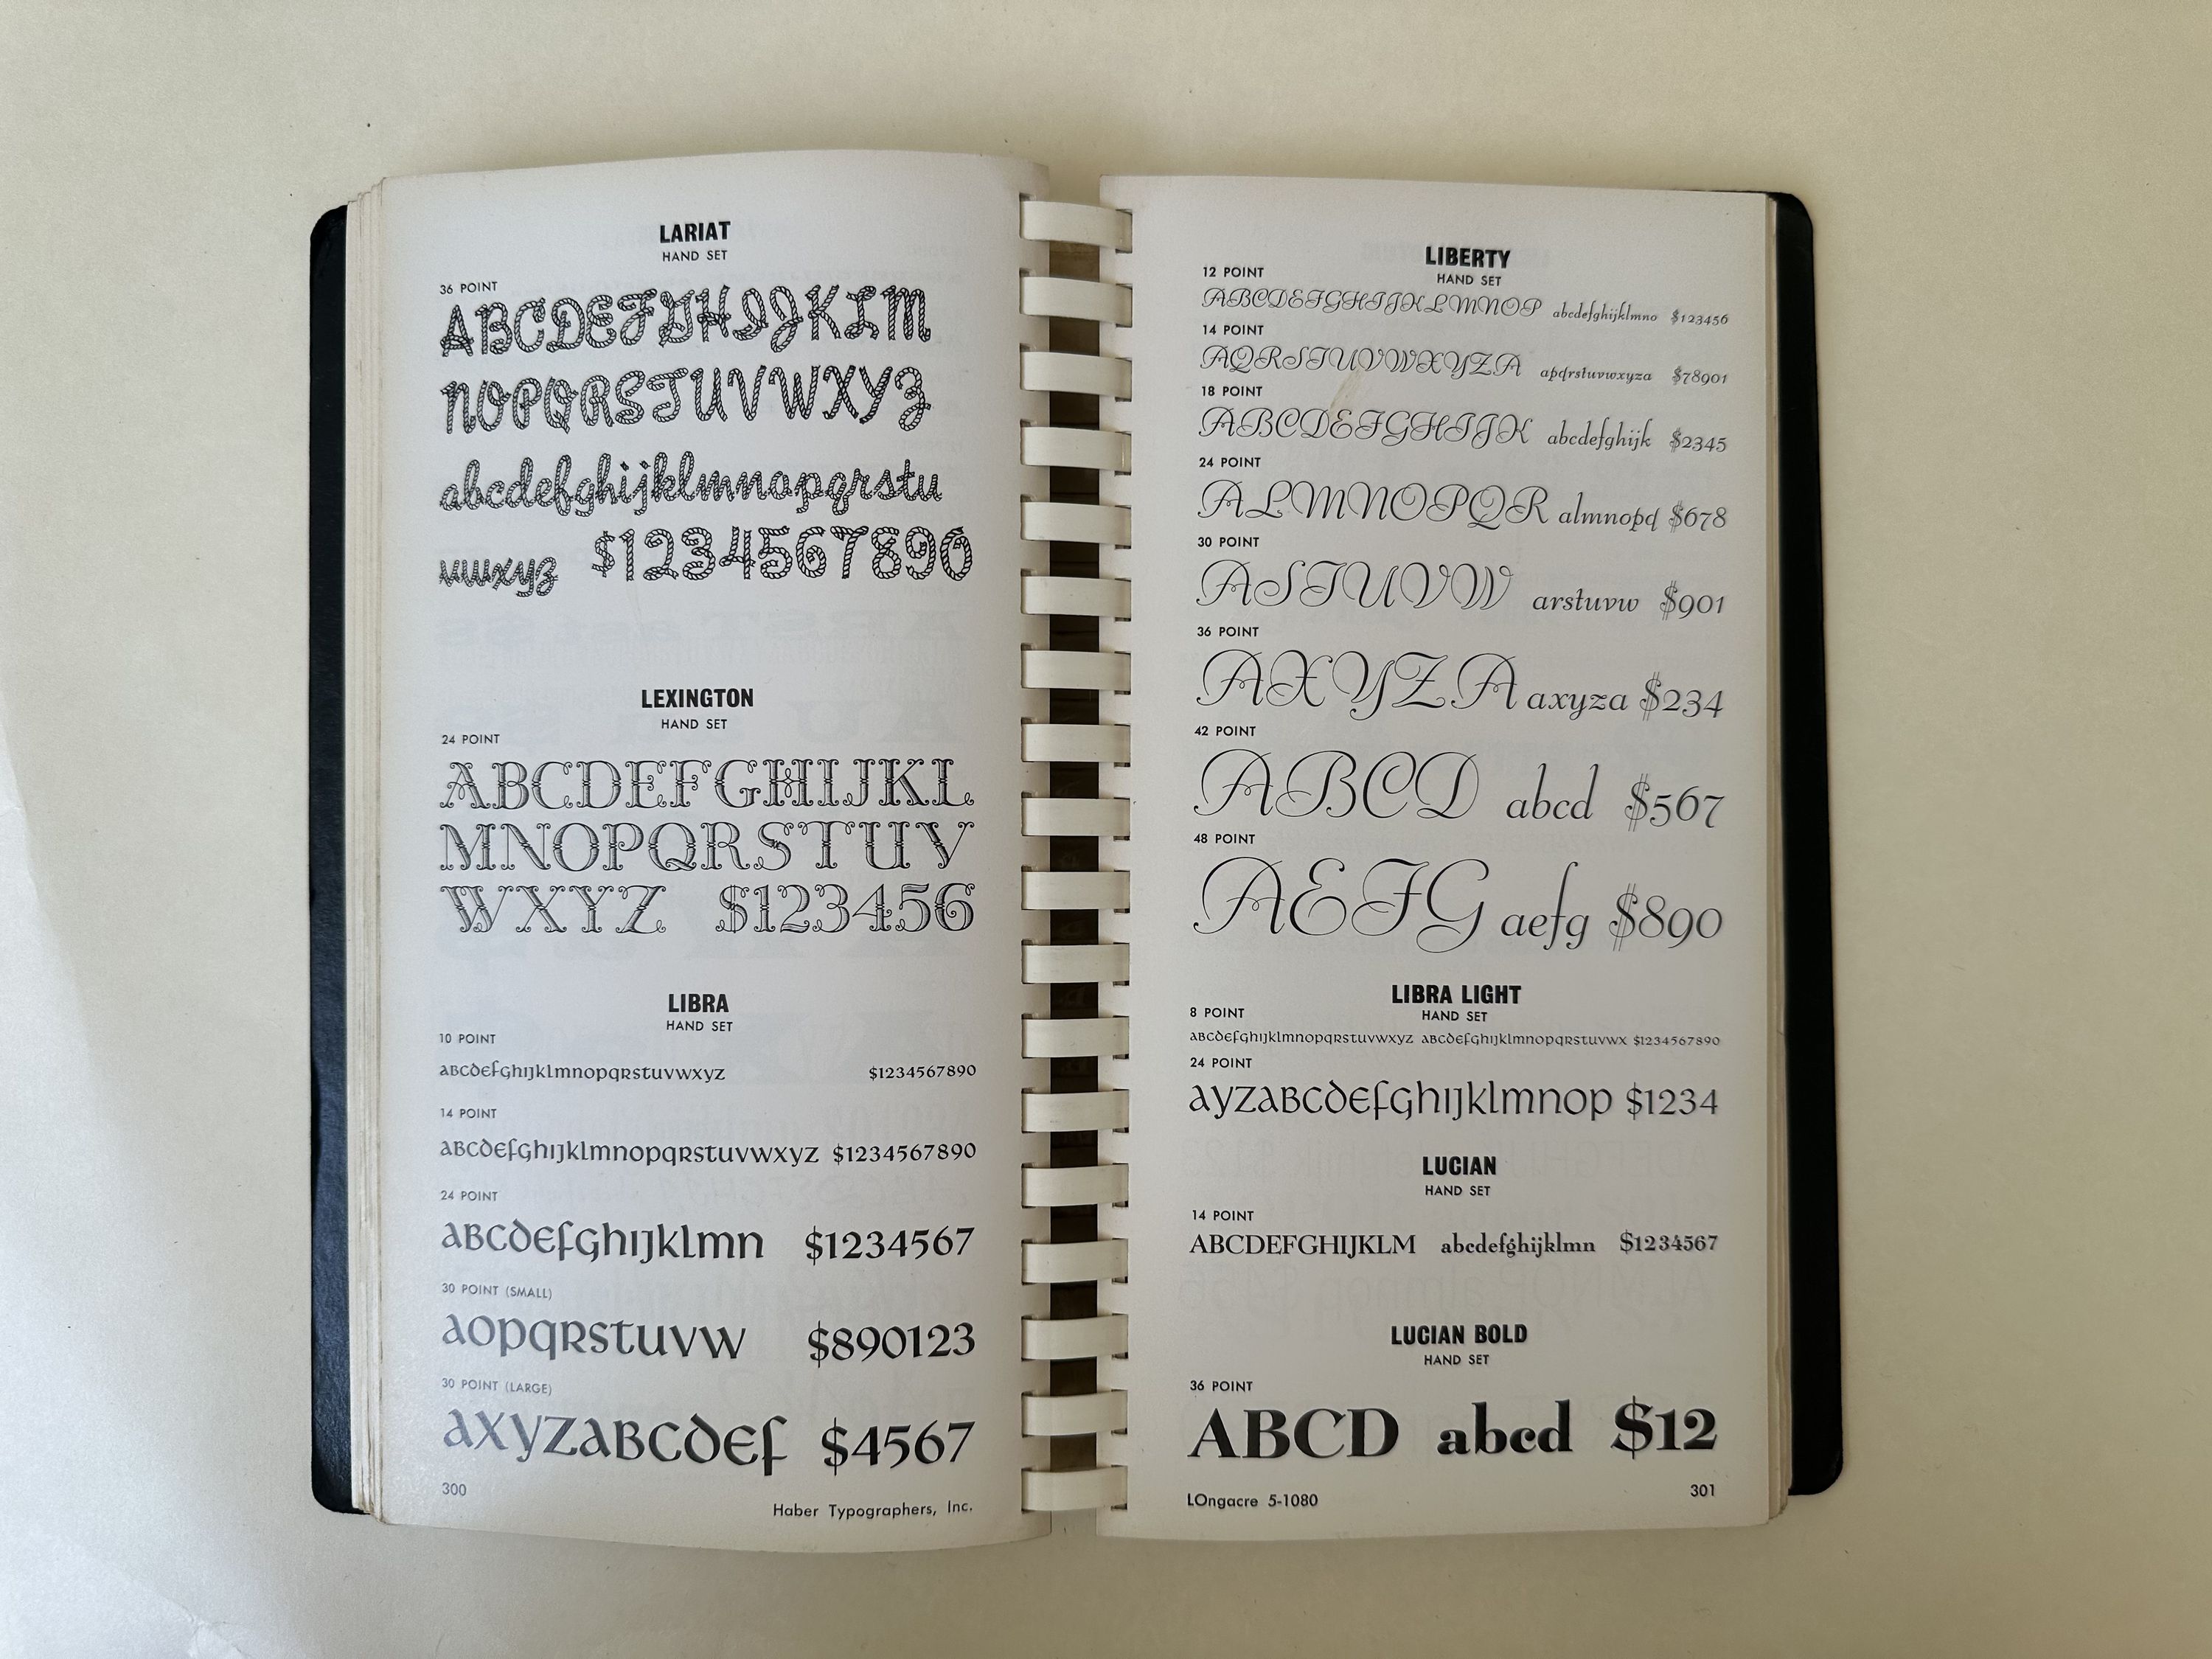 LARIAT
HAND SET
36 POINT
ABCDEFGHIJKLM
NOPQRSTUVWXYZ
abcdefghijklmnopqrstu
vwxyz $1234567890
LEXINGTON
HAND SET
24 POINT
ABCDEFGHIJKL
MNOPQRSTUV
WXYZ $123456
LIBRA
HAND SET
10 POINT
abcdefghijklmnopqrstuvwxyz $1234567890
14 POINT
abcdefghijklmnopqrstuvwxyz $1234567890
24 POINT
abcdefghijklmn $1234567
30 POINT (SMALL)
aopqrstuvw $890123
30 POINT (LARGE)
axyzabcdef $4567
300
Haber Typographers, Inc.
LIBERTY
HAND SET
12 POINT
ABCDEFGHIJKLMNOP abcdefghijklmno $123456
14 POINT
AQRSTUVWXYZA apqrstuvwxyza $78901
18 POINT
ABCDEFGHIJK abcdefghijk $2345
24 POINT
ALMNOPQR almnopq $678
30 POINT
ASTUVW arstuvw $901
36 POINT
AXYZA axyza $234
42 POINT
ABCD abcd $567
48 POINT
AEFG aefg $890
LIBRA LIGHT
HAND SET
8 POINT
abcdefghijklmnopqrstuvwxyz abcdefghijklmnopqrstuvwx $1234567890
24 POINT
ayzabcdefghijklmnop $1234
LUCIAN
HAND SET
14 POINT
ABCDEFGHIJKLM abcdefghijklmn $1234567
LUCIAN BOLD
HAND SET
36 POINT
ABCD abcd $12
LOngacre 5-1080
301